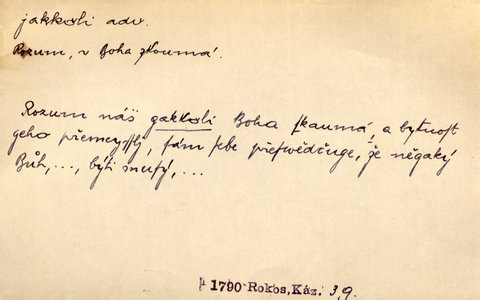 jakkoli adv.
Rozum, v Boha zkoumá.
Rozum náš gakkoli Boha ſkaumá, a bytnoſt
geho přemeyſſlj, ſám ſebe přeſwědčuge, že něgaký
Bůh, ..., býti muſý, ...
1790 Rokos, Káz. 3,9.